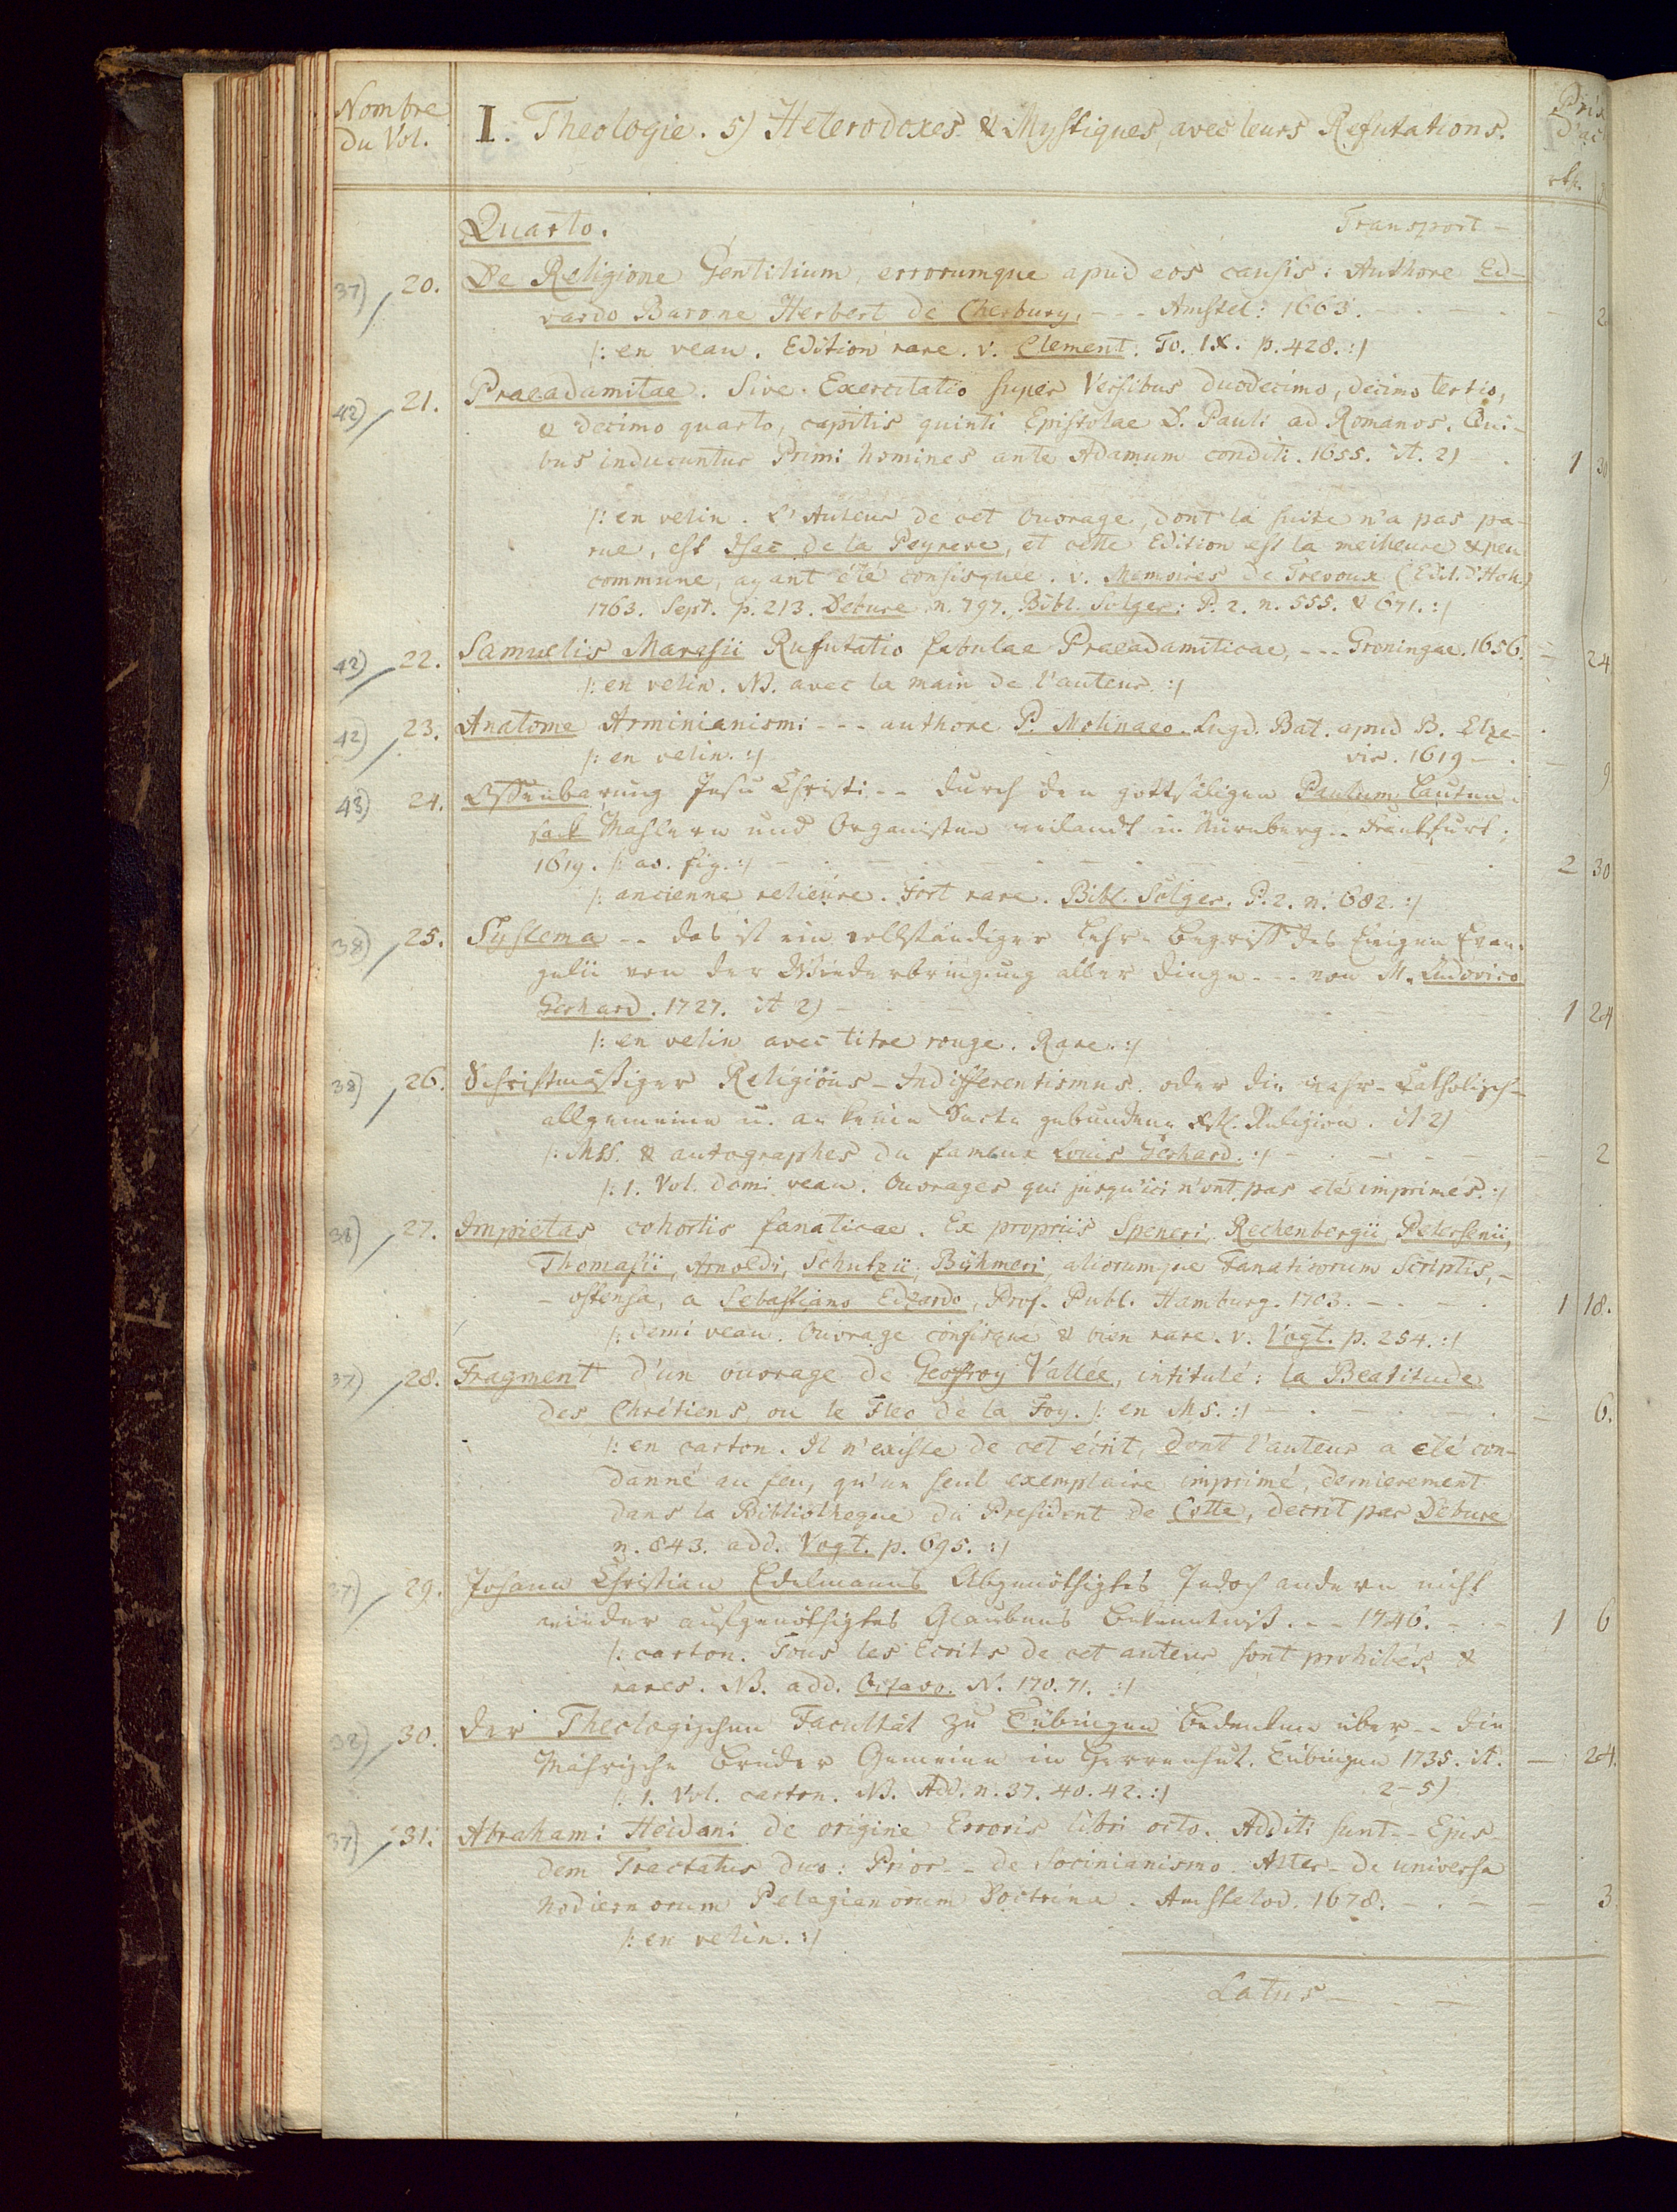 Nombre
du Vol.
I. Theologie. 5) Heterodoxes & Mystiques, avec leurs Refutations.
Prix
d'ac
rth.
Quarto. Transport -
37) 20. De Religione Gentilium errorumque apud eos causis: Authore Ed-
vardo Barone Herbert de Cherbury. - - - Amstel: 1663. - 2
/: en veau. Edition rare. v. Clement. To. IX. p. 428. :/
42) 21. Praeadamitae. Sive Exercitatio super Versibus duodecimo, decimo tertio,
& decimo quarto, capitis quinti Epistolae D. Pauli ad Romanos. Qui-
bus inducuntur Primi homines ante Adamum conditi. 1655. it. 2) 1 30
/: en velin. L'Auteur de cet Ouvrage, dont la suite n'a pas pa-
rue, est Isac de la Peyrere, et cette Edition est la meilleure & peu
commune, ayant été confisquée. v. Memoires de Trevoux (Edit. d'Hol.)
1763. Sept. p. 213. Debure n. 797. Bibl. Solger: P. 2. n. 555. & 671. :/
42) 22. Samuelis Maresii Rufutatio fabulae Praeadamiticae, - - - Groningae. 1656. - 24
/: en velin. NB. avec la main de l'auteur. :/
42) 23. Anatome Arminianismi - - - authore P. Molinaeo. Lugd. Bat. apud B. Elze-
/: en velin. :/ vir. 1619 - . - 9
43) 24. Offenbarung Jesu Christi - - durch den gottsäligen Paulum Lauten-
sack Mahlern und Organisten weilandt in Nürnberg - - Frankfurt;
1619. /: av. fig. :/ - 2 30
/: ancienne relieure. Fort rare. Bibl. Solger. P. 2. n. 682. :/
38) 25. Systema - - das ist ein vollständiger Lehr-Begriff des Ewigen Evan-
gelii von der Wiederbringung aller Dinge - - - von M. Ludovico
Gerhard. 1727. it 2) - 1 24
/: en velin avec titre rouge. Rare. :/
38) 26. Schriftmäßiger Religions-Indifferentismus. oder die wahr-Catholisch-
allgemeine u. an keine Secte gebundene Religion. it 2)
/: MSS. & autographes du fameux Louis Gerhard. :/ - 2
/: 1. Vol. demi veau. Ouvrages qui jusqu'ici n'ont pas eté imprimés. :/
38) 27. Impietas cohortis fanaticae. Ex propriis Speneri, Rechenbergii, Petersenii,
Thomasii, Arnoldi, Schutzii, Böhmeri, aliorumque Fanaticorum Scriptis, -
- ostensa, a Sebastiano Edzardo, Prof. Publ. Hamburg. 1703. - 1 18.
/: demi veau. Ouvrage confisqué & bien rare. v. Vogt. p. 254. :/
37) 28. Fragment d'un ouvrage de Geoffroy Vallée, intitulé: la Beatitude
des Chrétiens, ou le Fleo de la Foy. /: en MS. :/ - 6.
/: en carton. Il n'existe de cet écrit, dont l'auteur a eté con-
danné au feu, qu'un seul exemplaire imprimé, dernierement
dans la Bibliotheque du President de Cotte, decrit par Debure
n. 843. add. Vogt. p. 695. :/
37) 29. Johann Christian Edelmanns Abgenöthigtes Jedoch andern nicht
wieder aufgenöthigtes Glaubens Bekenntniß. - - 1746. - 1 6
/: carton. Tous les Ecrits de cet auteur sont prohibés, &
rares. NB. add. Octavo. N. 170. 71. :/
38) 30. Der Theologischen Facultät zu Tübingen Bedenken über - - die
Mährische Brüder Gemeine in Herrenhut. Tübingen 1735. it. - 24.
/: 1. Vol. carton. NB. Add. n. 37. 40. 42. :/ 2-5)
37) 31. Abrahami Heidani de origine Erroris libri octo. Additi sunt - - Ejus-
dem Tractatus duo: Prior - - de Socinianismo. Alter - de universa
hodiernorum Pelagianorum Doctrina. Amstelod. 1678. - 3
/: en velin. :/
Latus -